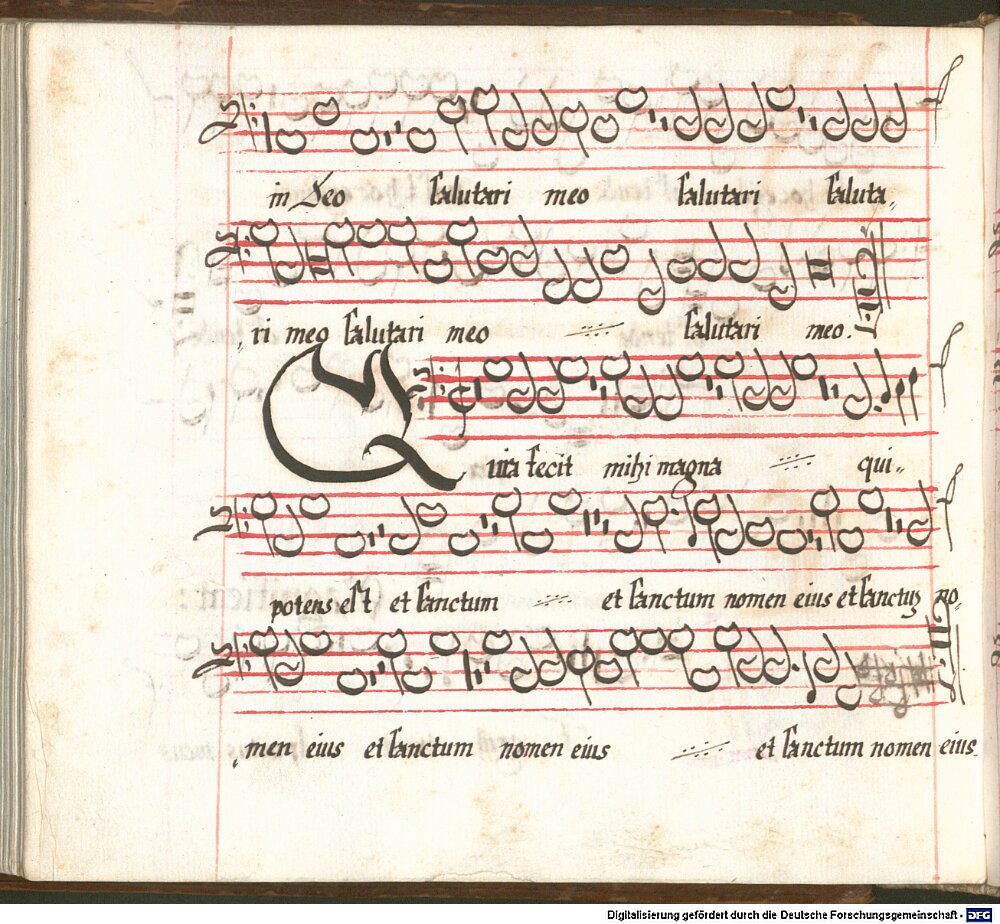 in Deo salutari meo salutari saluta„
„ri meo salutari meo salutari meo.
Quia fecit mihi magna qui„
potens est et sanctum et sanctum nomen eius et sanctum no„
„men eius et sanctum nomen eius et sanctum nomen eius
Digitalisierung gefördert durch die Deutsche Forschungsgemeinschaft - DFG